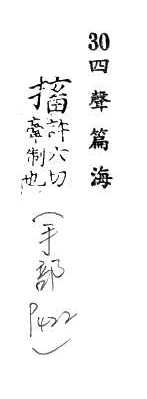 30 四聲篇海
搐許六切
牽制也
（手部
P422）